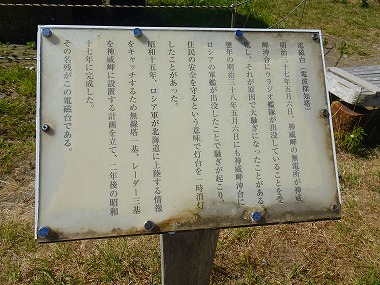 電磁台(電波探知塔)
明治三十七年五月六日、神威岬の無電所が神威
岬沖合にウラジオ艦隊が出没していることを受
電し、それが原因で大騒ぎになったことがある。
翌年の明治三十八年五月六日にも神威岬沖合に
ロシアの軍艦が出没したことで騒ぎが起こり、
住民の安全を守るという意味で灯台を一時消灯
したことがあった。
昭和十五年、ロシア軍が北海道に上陸する情報
をキャッチするため無線塔一基、レーダー三基
を神威岬に設置する計画を立て、二年後の昭和
十七年に完成した。
その名残がこの電磁台である。